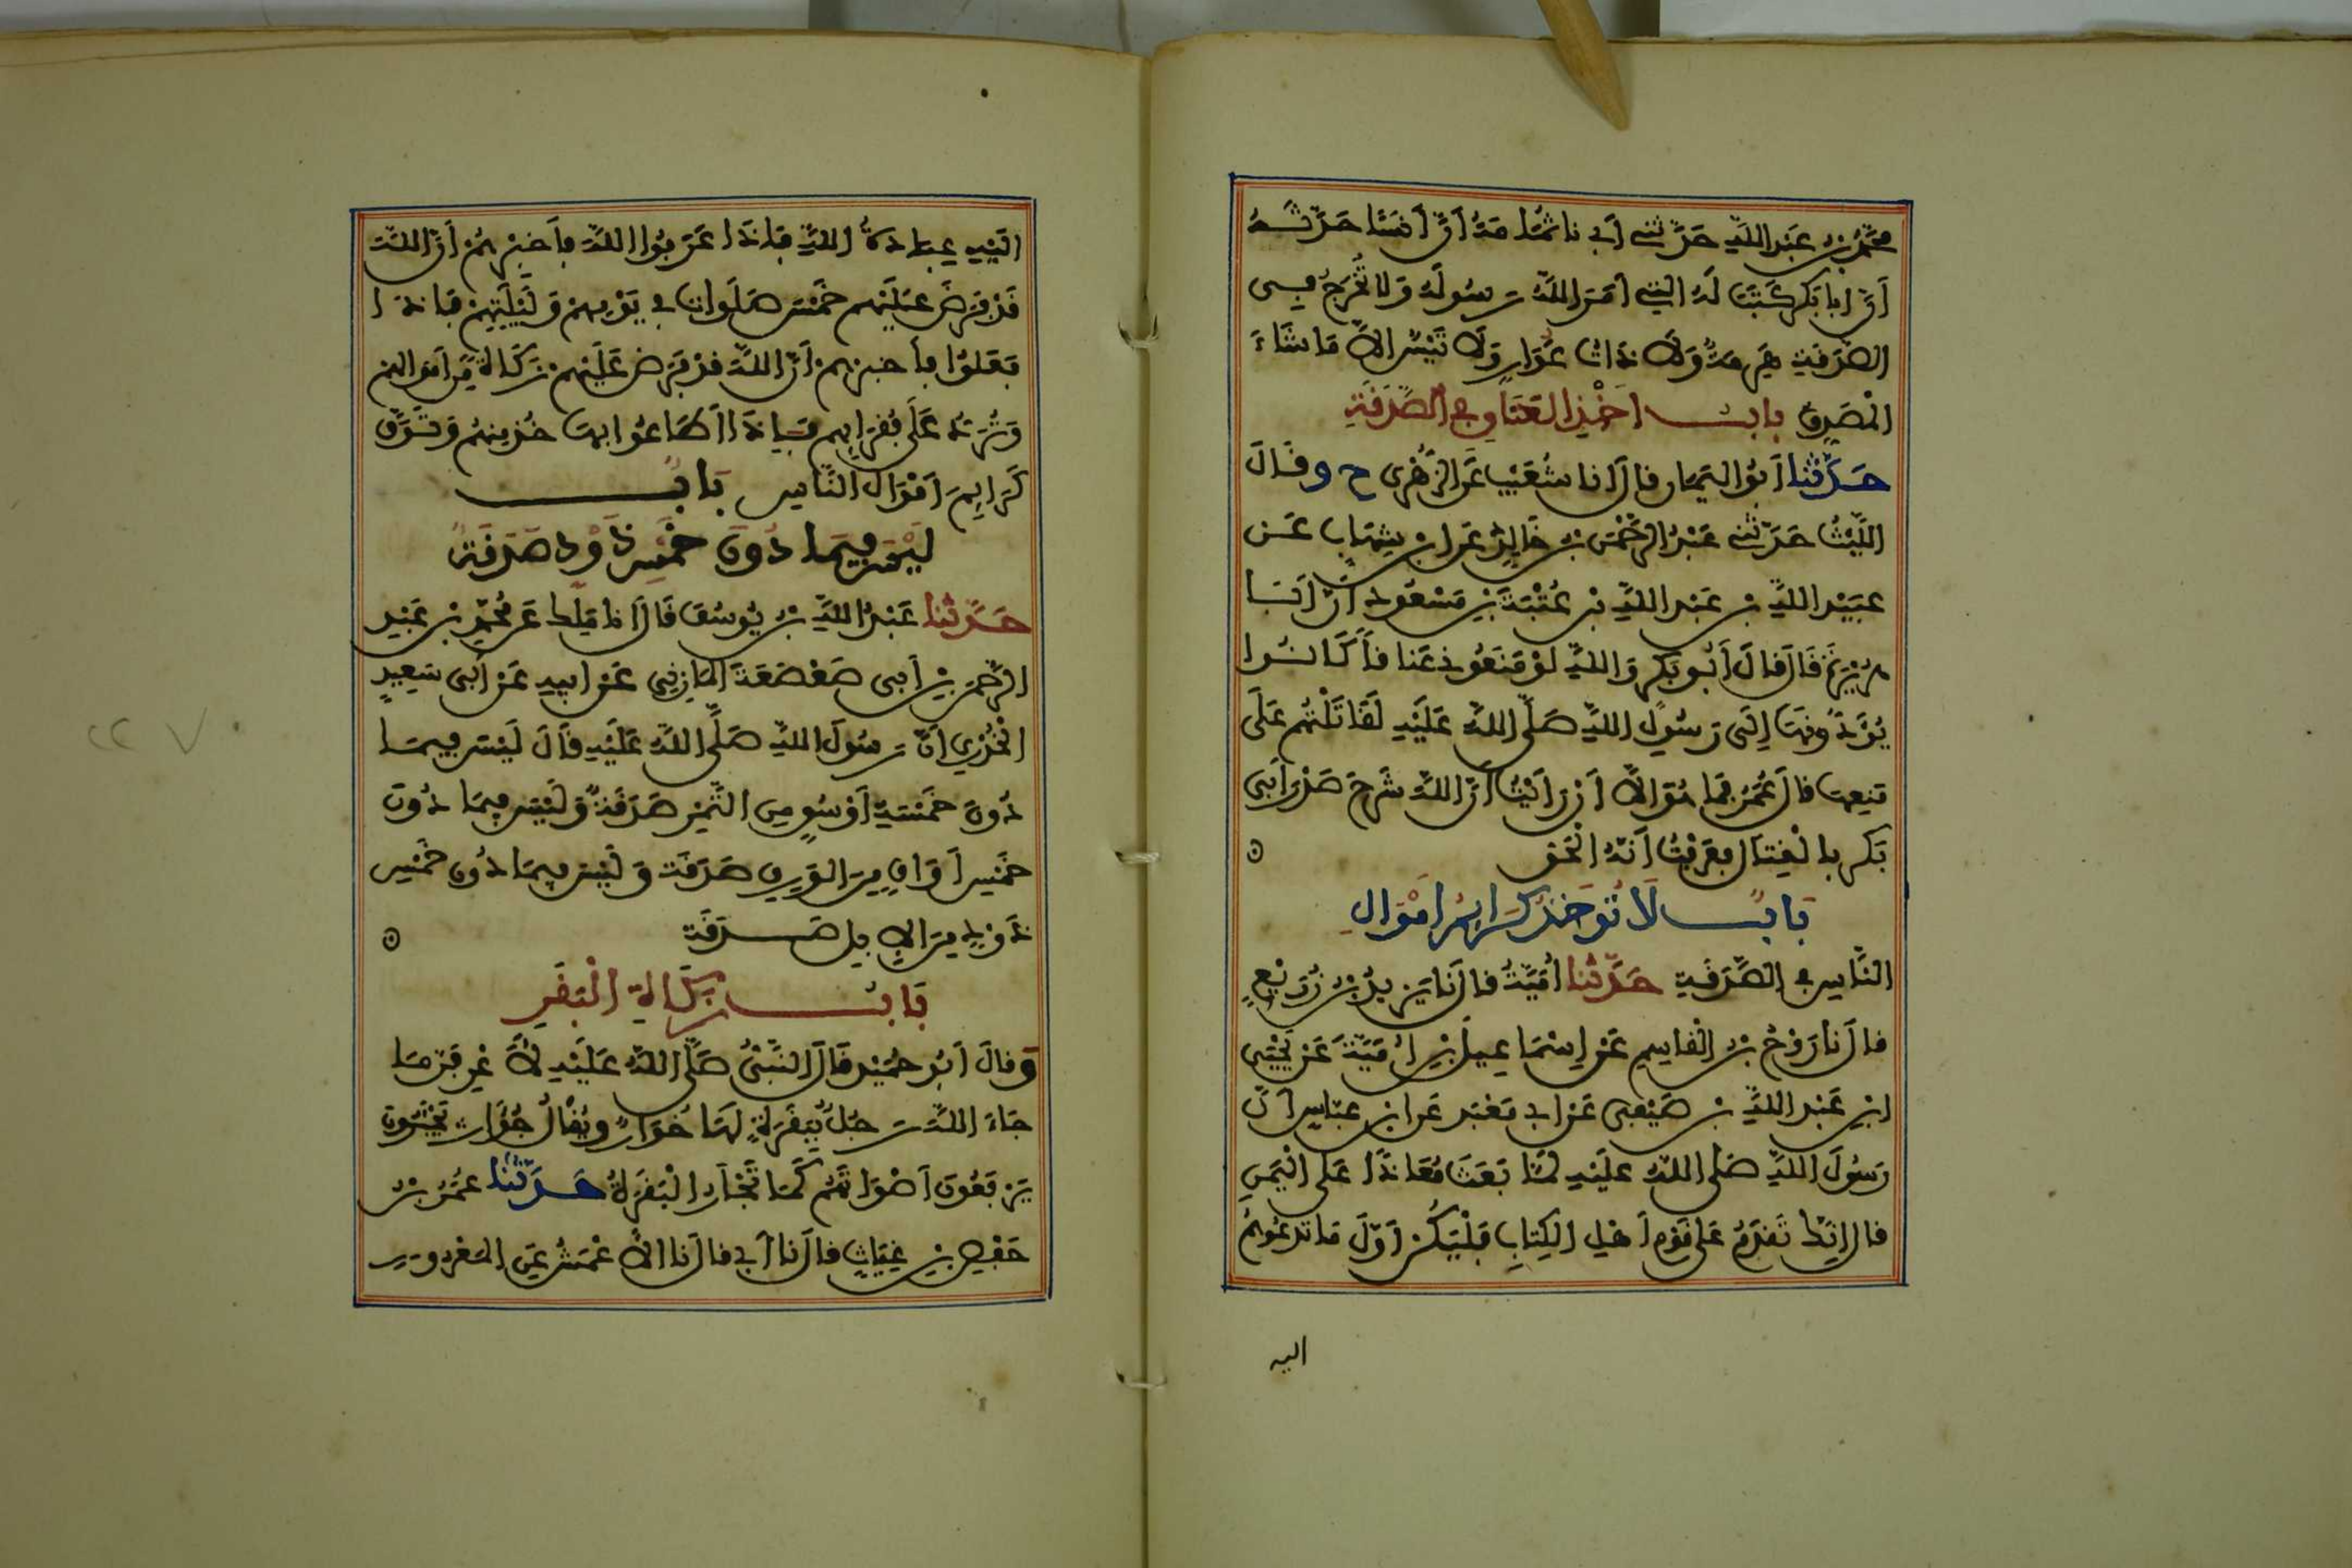 محمد بن عبد الله حدثني أبي نا ثمامة أن أنسا حدثه
أن أبا بكر كتب له التي أمر الله رسوله ولا تخرج في
الصدقة هرمة ولا ذات عوار ولا تيس إلا ما شاء
المصدق باب أخذ العناق في الصدقة
حدثنا أبو اليمان قال أنا شعيب عن الزهري ح وقال
الليث حدثني عبد الرحمن بن خالد عن ابن شهاب عن
عبيد الله بن عبد الله بن عتبة بن مسعود أن أبا
هريرة قال قال أبو بكر والله لو منعوني عناقا كانوا
يؤدونها إلى رسول الله صلى الله عليه لقاتلتهم على
منعها قال عمر فما هو إلا أن رأيت أن الله شرح صدر أبي
بكر بالقتال فعرفت أنه الحق
باب لا تؤخذ كرائم أموال
الناس في الصدقة حدثنا أمية قال نا يزيد بن زريع
قال نا روح بن القاسم عن إسماعيل بن أمية عن يحيى
ابن عبد الله بن صيفي عن أبي معبد عن ابن عباس أن
رسول الله صلى الله عليه لما بعث معاذا على اليمن
قال إنك تقدم على قوم أهل الكتاب فليكن أول ما تدعوهم
اليه
اليه عبادة الله فإذا عرفوا الله فأخبرهم أن الله
قد فرض عليهم خمس صلوات في يومهم وليلتهم فإذا
فعلوا فأخبرهم أن الله قد فرض عليهم زكاة من أموالهم
وترد على فقرائهم فإذا أطاعوا بها خذ منهم وتوق
كرائم أموال الناس باب
ليس فيما دون خمس ذود صدقة
حدثنا عبد الله بن يوسف قال أنا ملك عن محمد بن عبد
الرحمن بن أبي صعصعة المازني عن أبيه عن أبي سعيد
الخدري أن رسول الله صلى الله عليه قال ليس فيما
دون خمسة أوسق من التمر صدقة وليس فيما دون
خمس أواق من الورق صدقة وليس فيما دون خمس
ذود من الإبل صدقة
باب زكاة البقر
وقال أبو حميد قال النبي صلى الله عليه لأعرفن ما
جاء الله رجل ببقرة لها خوار ويقال جؤار تجئرون
يرفعون أصواتهم كما تجأر البقرة حدثنا عمر بن
حفص بن غياث قال نا أبي قال نا الأعمش عن المعرور
٢٢٧